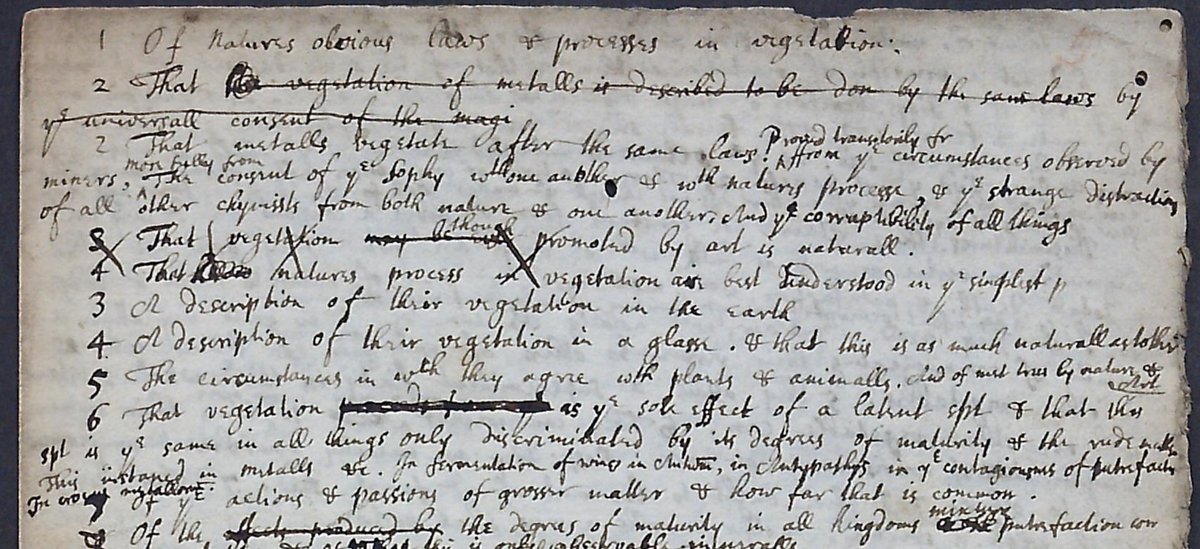 1 Of Natures obvious laws & processes in vegetation.
2 That the vegetation of metalls is described to be don by the same laws by
yᵉ universall consent of the magi
2 That metalls vegetate after the same laws. Proved transitorily fr
more fully from from yᵉ circumstances observed by
miners, The consent of yᵉ Sophy wᵗʰ one another & wᵗʰ natures processe, & yᵉ strange distraction
of all other chymists from both nature & one another. And yᵉ corruptibility of all things
3 That vegetation may be though promoted by art is naturall.
4 That natures process in vegetation are best understood in yᵉ simplest p
3 A description of their vegetation in the earth
4 A description of their vegetation in a glasse. & that this is as much naturall as tother
5 The circumstances in wᶜʰ they agree wᵗʰ plants & animalls. And of met trees by nature &
Art
6 That vegetation is yᵉ sole effect of a latent spt & that this
spt is yᵉ same in all things only discriminated by its degrees of maturity & the rude matter
This instanced in metalls &c. In fermentation of wines in Autum̄, in Antypathys in yᵉ contagiousnes of putrefactn
7 Of yᵉ actions & passions of grosser matter & how far that is common.
8 Of the effects produced by the degrees of maturity in all Kingdoms putrefaction